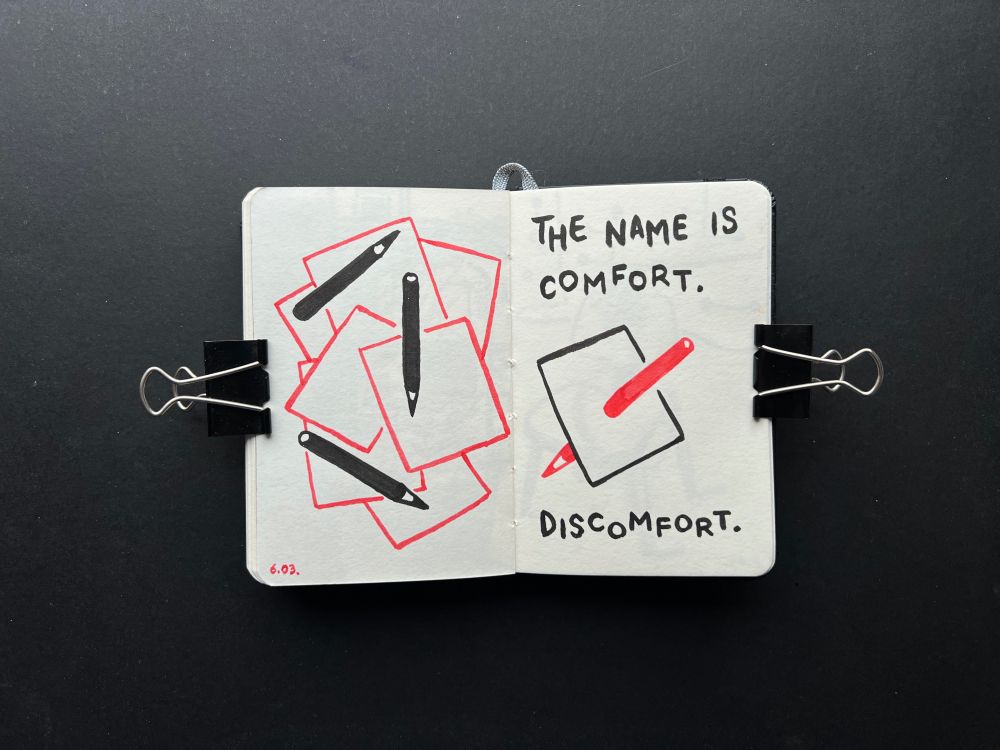 6.03.
THE NAME IS
COMFORT.
DISCOMFORT.